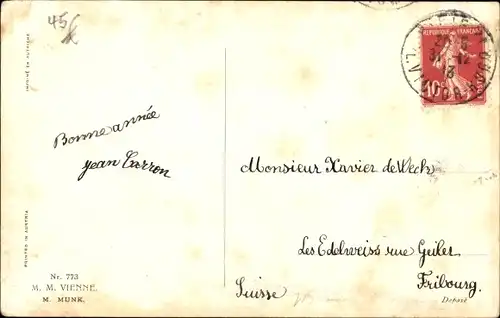 45
IMPRIMÉ EN AUTRICHE
PRINTED IN AUSTRIA
REPUBLIQUE FRANÇAISE
31 12
10
Bonne année
Jean Carron
Monsieur Xavier de Weck
Les Edelweiss rue Geiler
Fribourg.
Suisse
Nr. 773
M. M. VIENNE.
M. MUNK.
Déposé